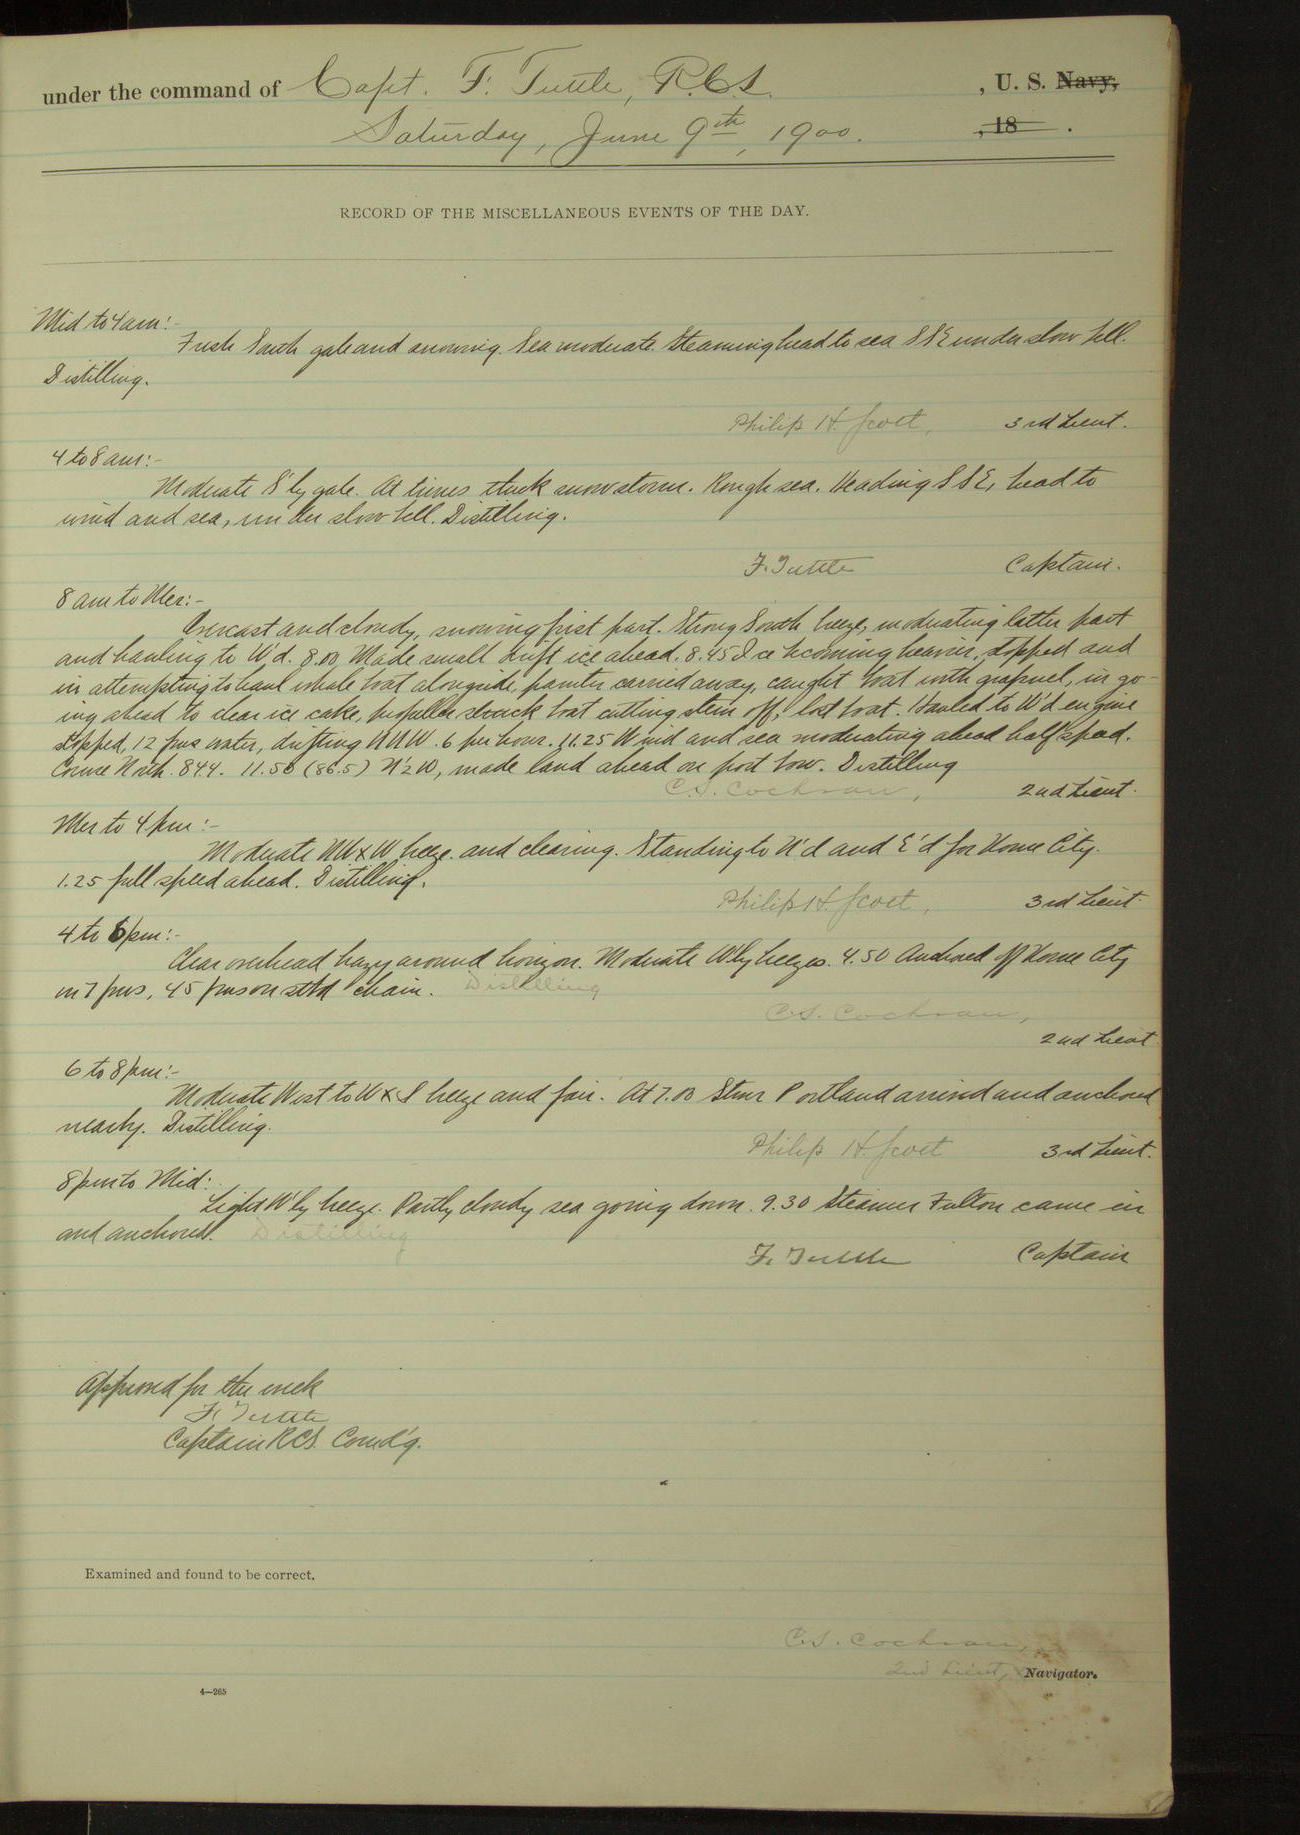 under the command of Capt. F. Tuttle, R.C.S. , U. S. Navy,
Saturday, June 9th, 1900. , 18 .
RECORD OF THE MISCELLANEOUS EVENTS OF THE DAY.
Mid to 4 am:-
Fresh South gale and snowing. Sea moderate. Steaming head to sea SSE under slow bell.
Distilling.
Philip H. Scott, 3rd Lieut.
4 to 8 am:-
Moderate S'ly gale. At times thick snow storm. Rough sea. Heading SSE, head to
wind and sea, under slow bell. Distilling.
F. Tuttle Captain.
8 am to Mer:-
Overcast and cloudy, snowing first part. Strong South breeze, moderating latter part
and hauling to W'd. 8.00 Made small drift ice ahead. 8.45 Ice becoming heavier, stopped and
in attempting to haul whale boat alongside, painter carried away, caught boat with grapnel, in go-
ing ahead to clear ice cake, propeller struck boat cutting stem off; lost boat. Hauled to W'd engine
stopped, 12 fms water, drifting NNW .6 per hour. 11.25 Wind and sea moderating ahead half speed.
Course North. 84.4. 11.50 (86.5) N½W, made land ahead on port bow. Distilling
C.S. Cochran, 2nd Lieut.
Mer to 4 pm:-
Moderate NWxW breeze and clearing. Standing to N'd and E'd for Nome City.
1.25 full speed ahead. Distilling.
Philip H. Scott, 3rd Lieut.
4 to 6 pm:-
Clear overhead hazy around horizon. Moderate W'ly breezes. 4.50 Anchored off Nome City
in 7 fms, 45 fms on stb'd chain. Distilling
C.S. Cochran,
2nd Lieut
6 to 8 pm:-
Moderate West to WxS breeze and fair. At 7.00 Stmr Portland arrived and anchored
nearby. Distilling.
Philip H. Scott 3rd Lieut.
8 pm to Mid:
Light W'ly breeze. Partly cloudy sea going down. 9.30 Steamer Fulton came in
and anchored. Distilling
F. Tuttle Captain
Approved for the week
F. Tuttle
Captain RCS. Comd'g.
Examined and found to be correct.
C.S. Cochran,
2nd Lieut, Navigator.
4—265